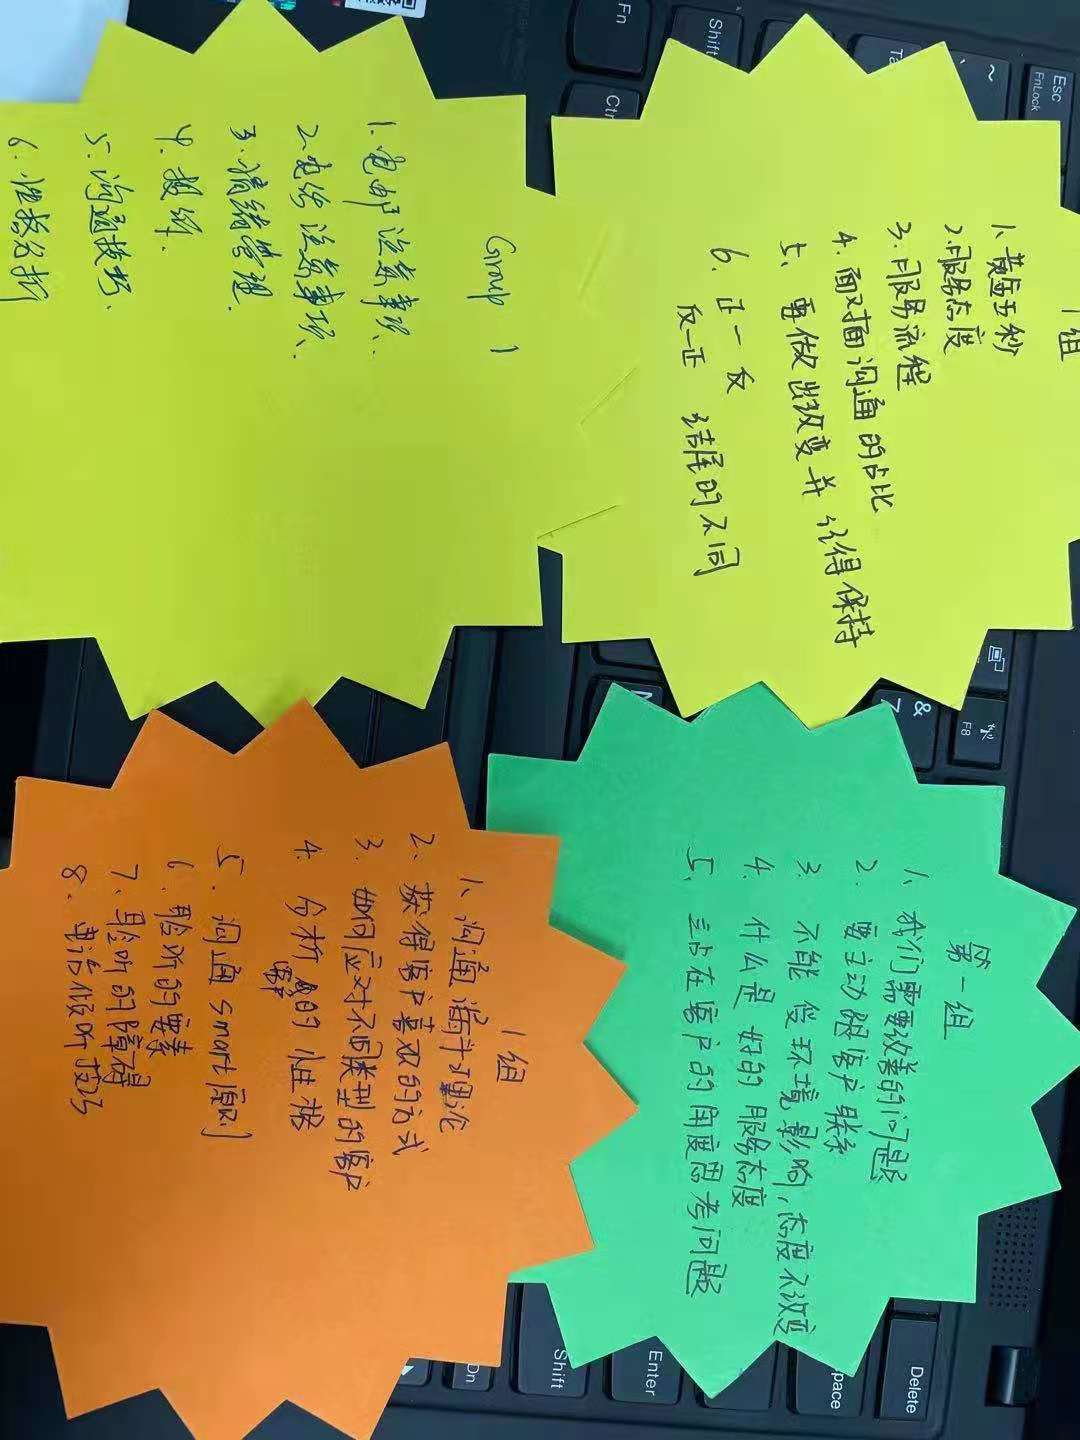 1组
1、黄金五秒
2、服务态度
3、服务流程
4. 面对面沟通的占比
5、要做出改变并记得保持
6、正一反
反一正 结尾的不同
Group 1
1. 电邮注意事项、
2. 电话注意事项、
3、情绪管理
4. 投诉.
5. 沟通技巧、
6. 性格分析
第一组
1、我们需要改善的问题
2. 要主动跟客户联系
3 不能受环境影响,态度不改变
4. 什么是好的服务态度
5、站在客户的角度思考问题
1组
1、沟通漏斗理论
2、获得客户喜欢的方式
3. 如何应对不同类型的客户
4. 分析客户的性格
5. 沟通smart原则
6. 聆听的要素
7. 聆听的障碍
8、电话倾听技巧
Esc
FnLock
~
Shift
Fn
Ctrl
&
7
F8
Delete
Enter
Shift